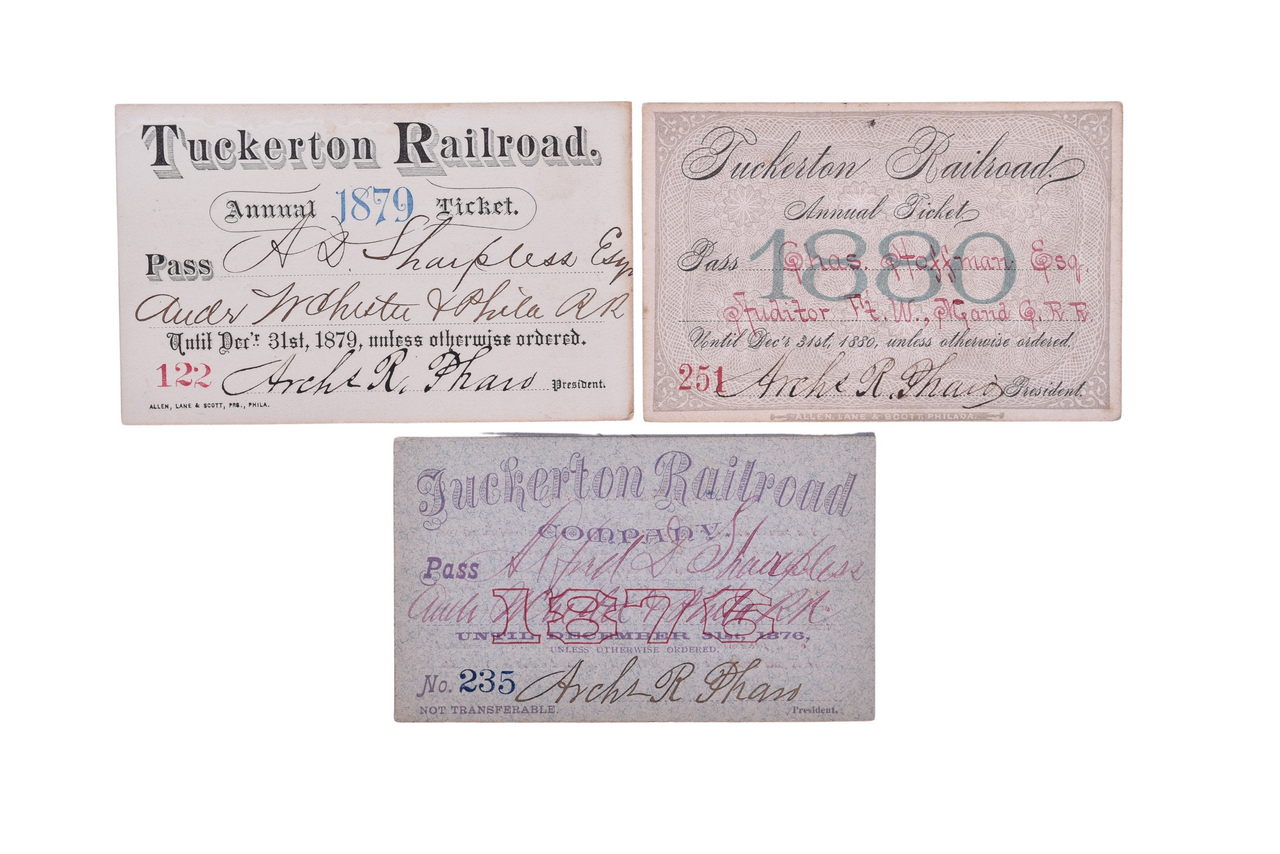 Tuckerton Railroad.
Annual 1879 Ticket.
Pass A D. Sharpless Esq
Audr WChester & Phila R R
Until Dec'r 31st, 1879, unless otherwise ordered.
122 Arch't R. Pharo President.
ALLEN, LANE & SCOTT, PRS., PHILA.
Tuckerton Railroad.
Annual Ticket
1880
Pass Chas. Hoffman Esq
Auditor Ft. W., M and C. R R
Until Dec'r 31st, 1880, unless otherwise ordered.
251 Arch't R. Pharo President.
ALLEN, LANE & SCOTT, PHILADA.
Tuckerton Railroad
COMPANY.
Pass Alfred D. Sharpless
Audr & Phila RR.
1876
UNTIL DECEMBER 31st, 1876,
UNLESS OTHERWISE ORDERED.
No. 235 Arch't R Pharo
NOT TRANSFERABLE. President.